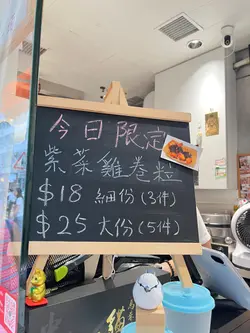 今日限定
紫菜雞卷粒
$18 細份(3件)
$25 大份(5件)